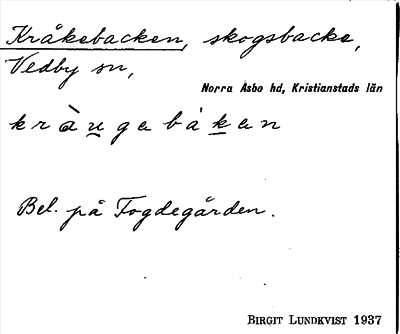 Kråkebacken, skogsbacke,
Vedby sn,
Norra Åsbo hd, Kristianstads län
kràu̲gabák̲an
Bel. på Togdegården.
BIRGIT LUNDKVIST 1937